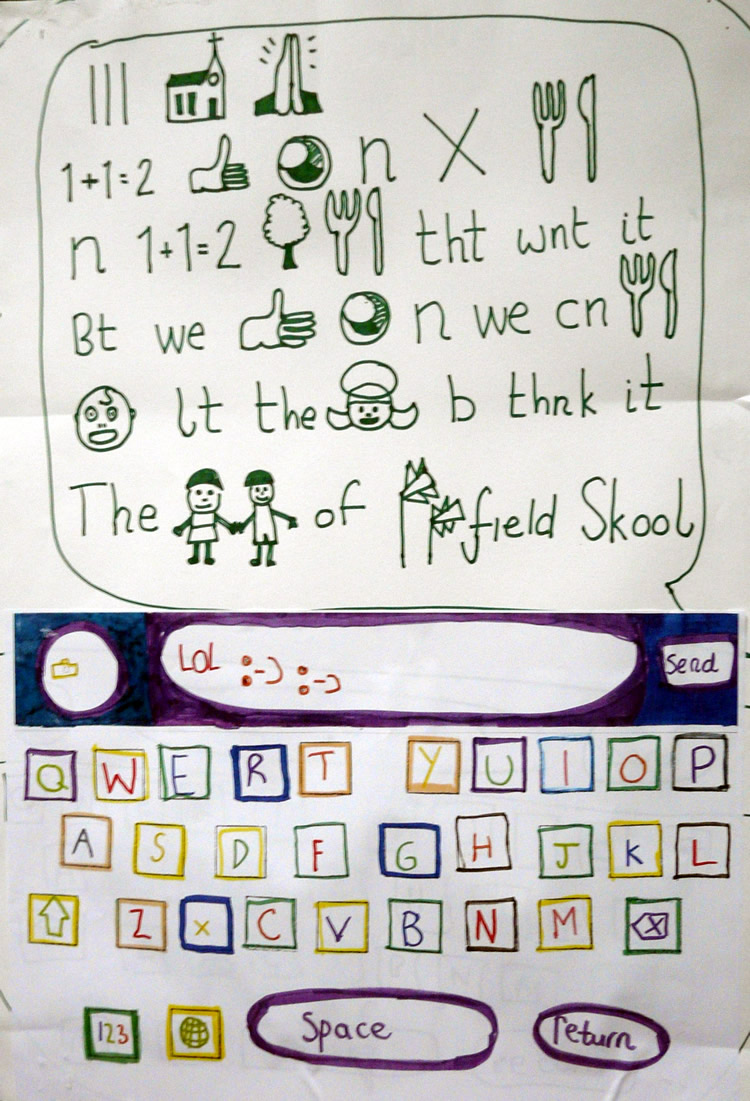 |||
1+1=2 n X
n 1+1=2 tht wnt it
Bt we n we cn
lt the b thnk it
The of field Skool
LOL :-) :-)
Send
Q W E R T Y U I O P
A S D F G H J K L
Z X C V B N M
123 Space return